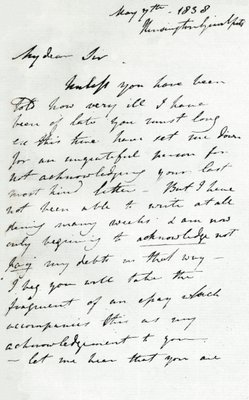 May 7th 1838
Kensington Gravel pits
My dear Sir
Unless you have been
told how very ill I have
been of late you must long
ere this time have set me down
for an ungrateful person for
not acknowledging your last
most kind letter - But I have
not been able to write at all
during many weeks & am now
only beginning to acknowledge not
pay my debts in that way -
I beg you will take the
fragment of an essay which
accompanies this as my
acknowledgement to you
- let me hear that you are